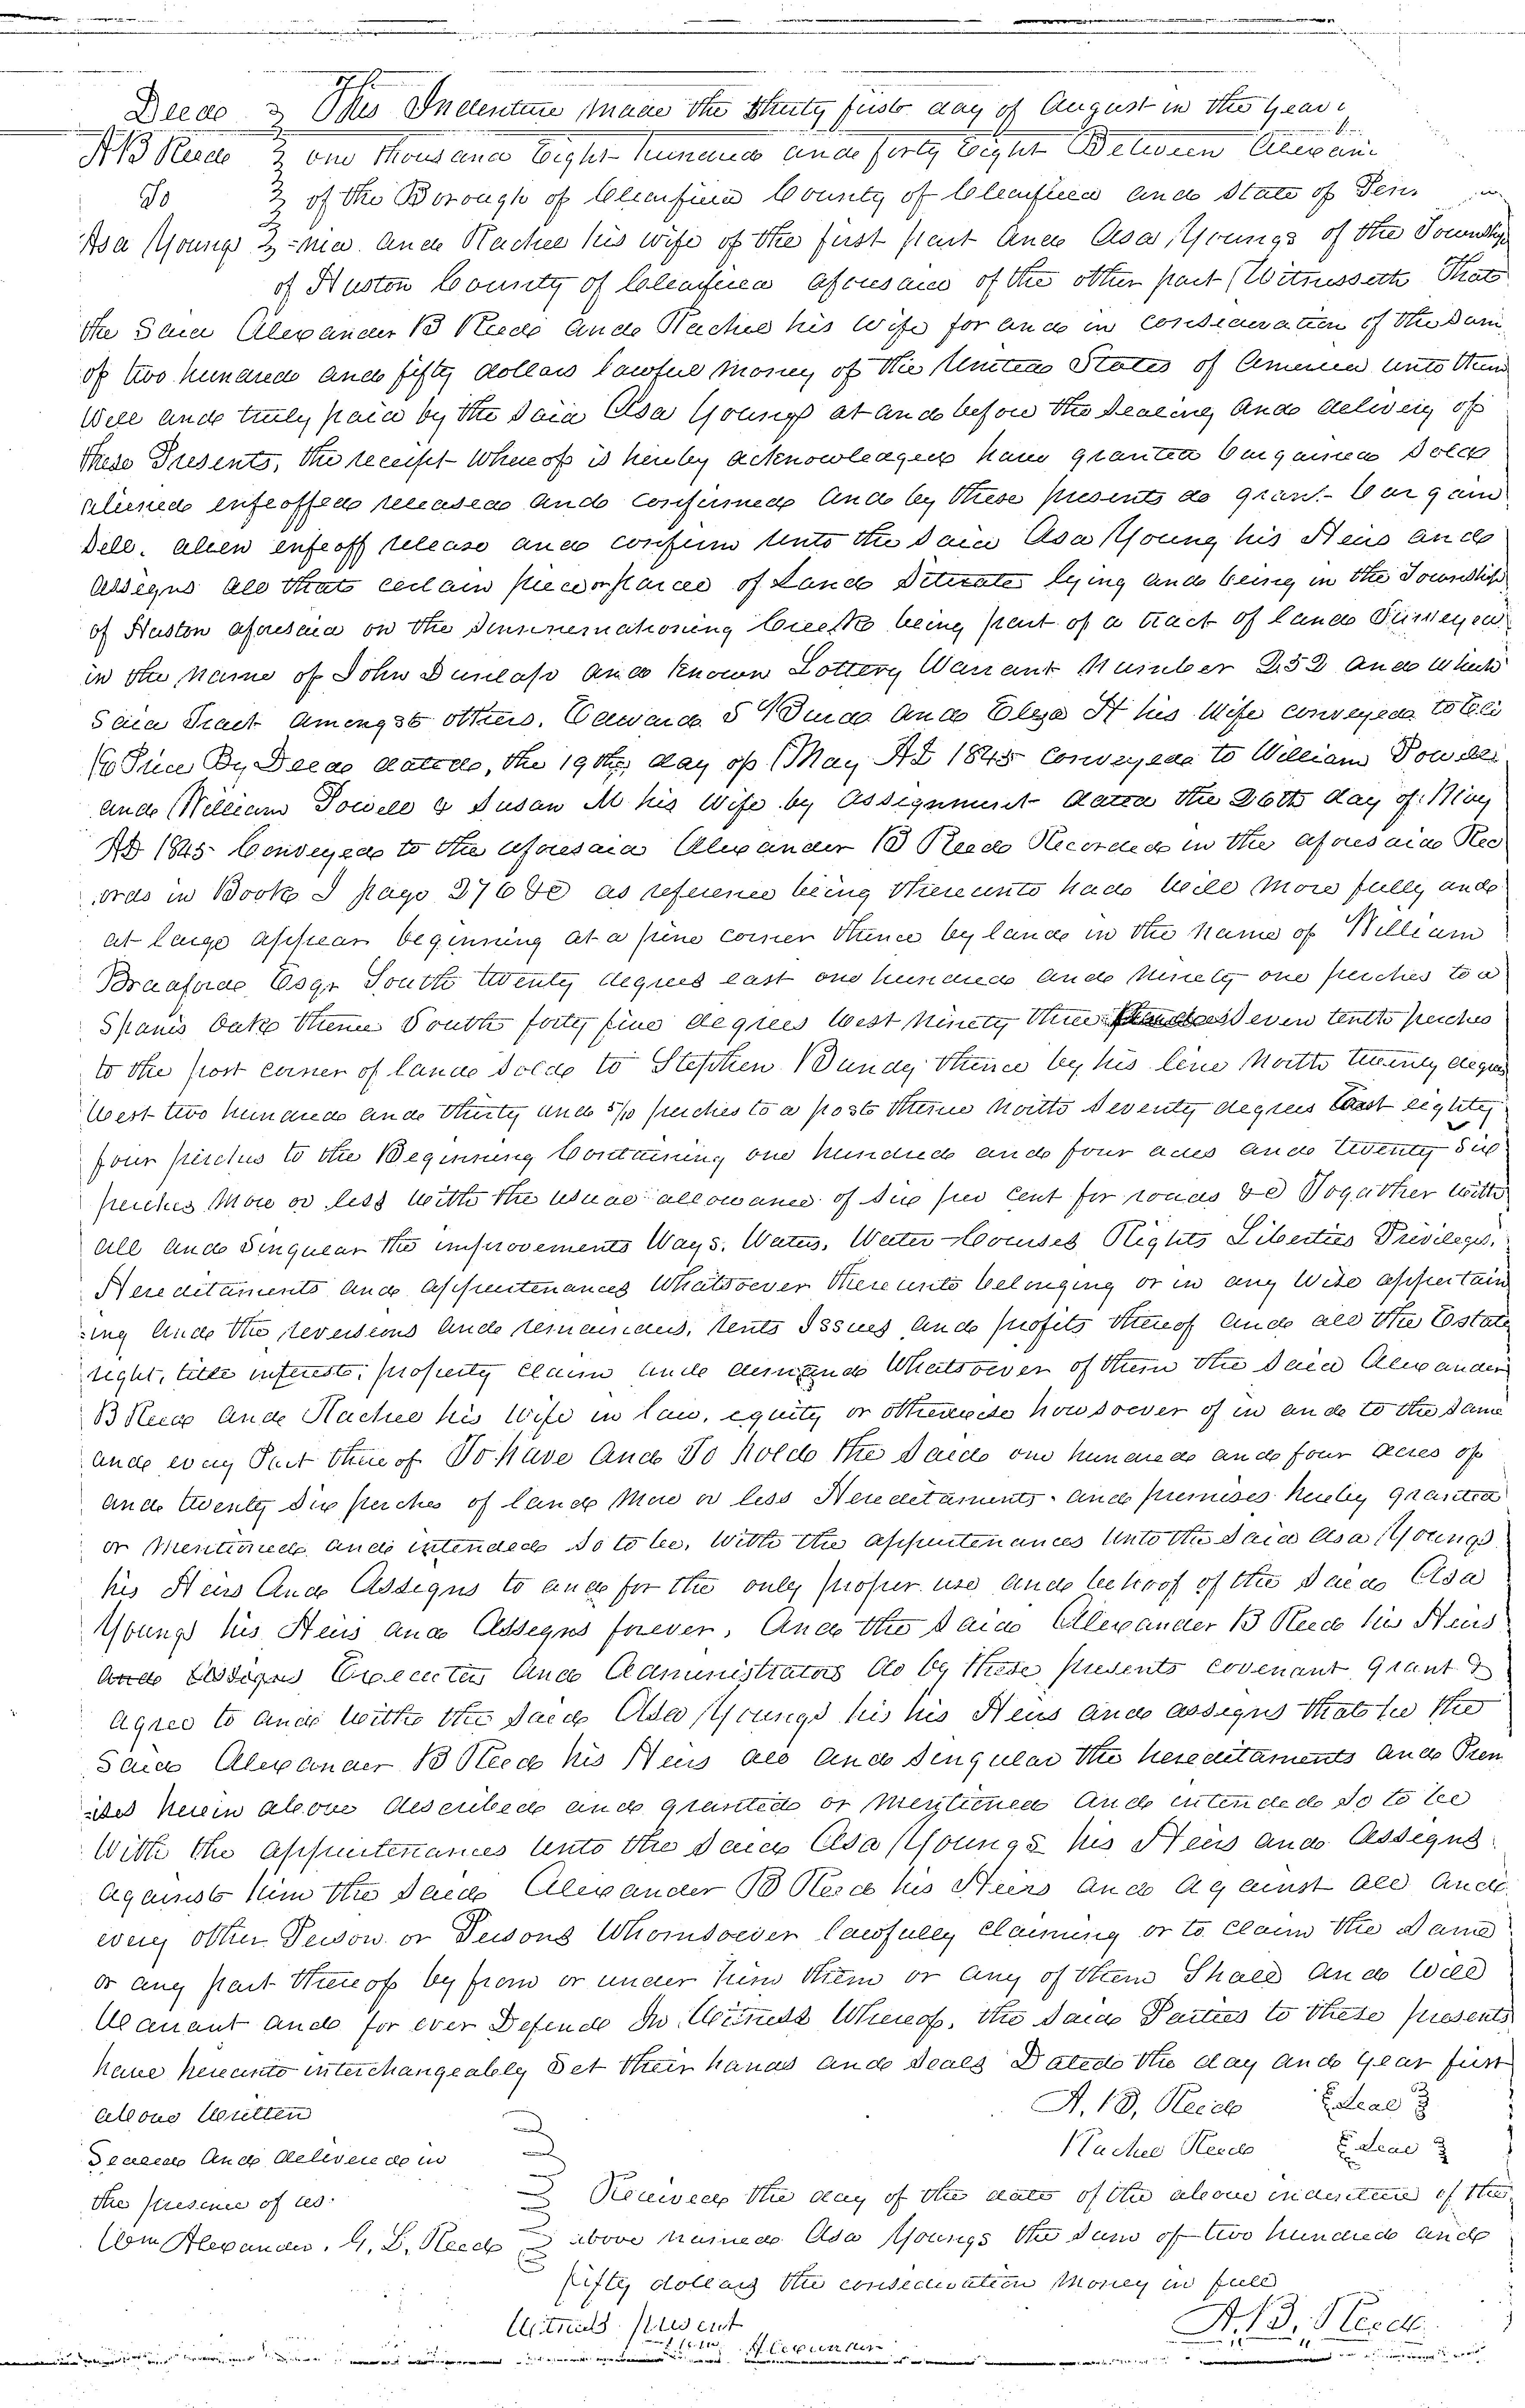 Deed } This Indenture made the thirty first day of August in the year
A B Reed } one thousand Eight hundred and forty Eight Between Alexan
To } of the Borough of Clearfield County of Clearfield and State of Penn
Asa Youngs } =nia and Rachel his wife of the first part And Asa Youngs of the Township
of Huston County of Clearfield aforesaid of the other part Witnesseth That
the Said Alexander B Reed and Rachel his wife for and in consideration of the Sum
of two hundred and fifty dollars lawful money of the United States of America unto them
Well and truly paid by the Said Asa Youngs at and before the Sealing And delivery of
these Presents, the receipt whereof is hereby acknowledged have granted bargained Sold
aliened enfeoffed released and confirmed And by these presents do grant bargain
Sell, alien enfeoff release and confirm unto the Said Asa Young his Heirs and
Assigns all that certain piece or parcel of Land Situate lying and being in the Township
of Huston aforesaid on the Sinnemahoning Creek being part of a tract of land Surveyed
in the name of John Dunlap and known Lottery Warrant Number 252 and which
Said Tract Amongst others. Edward S Burd and Eliza H his Wife conveyed to
By Deed dated, the 19th day of May AD 1845 Conveyed to William Powell
and William Powell & Susan M his Wife by Assignment dated the 26th day of May
AD 1845 Conveyed to the aforesaid Alexander B Reed Recorded in the aforesaid Rec
ords in Book I page 276 &c as reference being thereunto had will more fully and
at large appear beginning at a pine corner thence by land in the name of William
Bradford Esqr South twenty degrees east one hundred and ninety one perches to a
Spanis Oak thence South forty five degrees West ninety three Seven tenth perches
to the post corner of land Sold to Stephen Bundy thence by his line North twenty degrees
West two hundred and thirty and 5/10 perches to a post thence North Seventy degrees East eighty
four perches to the Beginning Containing one hundred and four acres and twenty Six
perches More or less with the usual allowance of Six per cent for roads &c Together with
all and Singular the improvements Ways, Waters, Water-Courses Rights Liberties Privileges,
Hereditaments and Appurtenances Whatsoever thereunto belonging or in any Wise appertain
=ing And the reversions and remainders, rents Issues and profits thereof and all the Estate
right, title interest, property claim and demand Whatsoever of them the Said Alexander
B Reed and Rachel his Wife in law, equity or otherwise howsoever of in and to the Same
and every Part thereof To have And To hold the Said one hundred and four acres of
and twenty Six perches of land More or less Hereditaments and premises hereby granted
or Mentioned and intended So to be, With the appurtenances Unto the Said Asa Youngs
his Heirs And Assigns to and for the only proper use and behoof of the Said Asa
Youngs his Heirs and Assigns forever. And the Said Alexander B Reed his Heirs
And Assigns Executors And Administrators do by these presents covenant grant &
Agree to and with the Said Asa Youngs his his Heirs and assigns that he the
Said Alexander B Reed his Heirs all and Singular the hereditaments and Prem
=ises herein above described and granted or Mentioned and intended So to be
With the Appurtenances Unto the Said Asa Youngs his Heirs and Assigns
Against him the Said Alexander B Reed his Heirs and Against all and
every other Person or Persons Whomsoever lawfully claiming or to claim the Same
or any part thereof by from or under him them or any of them Shall and Will
Warrant and for ever Defend In Witness Whereof, the Said Parties to these presents
have hereunto interchangeably Set their hands and Seals Dated the day and year first
above Written A. B. Reed {Seal}
Sealed And delivered in Rachel Reed {Seal}
the presence of us. } Received the day of the date of the above indenture of the
Wm Alexander. G. L. Reed } above named Asa Youngs the Sum of two hundred and
fifty dollars the consideration Money in full
Witness present A. B. Reed
Alexander